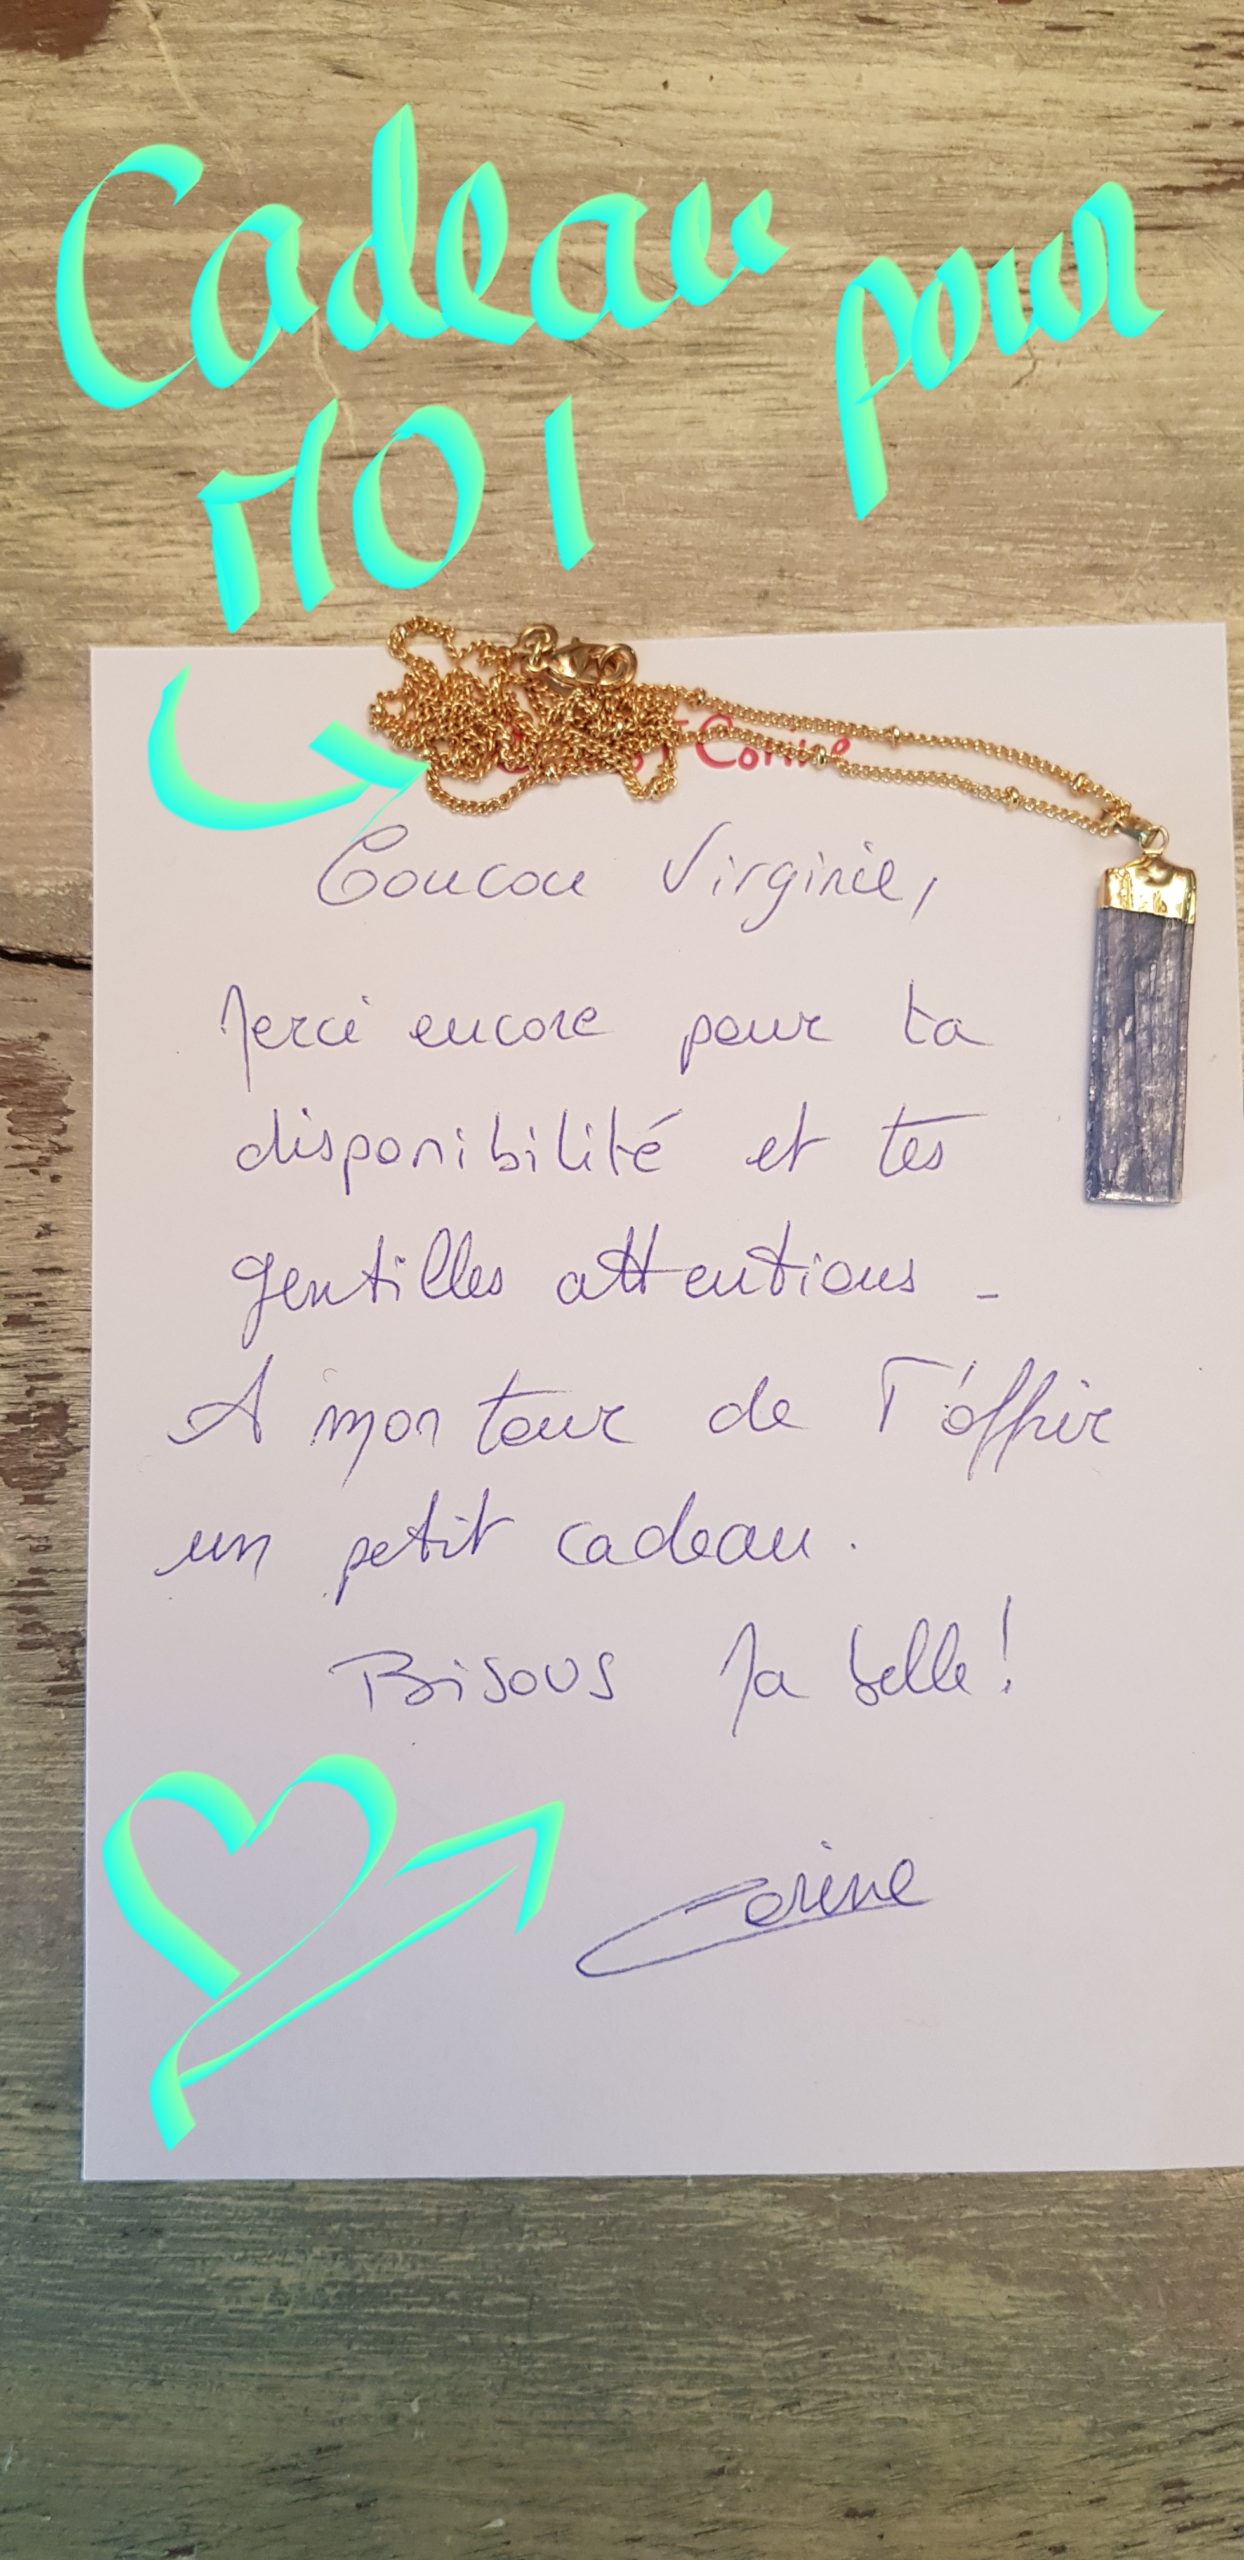 Cadeau pour
MOI
Corine
Coucou Virginie,
Merci encore pour ta
disponibilité et tes
gentilles attentions -
A mon tour de T'offrir
un petit cadeau.
Bisous Ma belle !
Corine